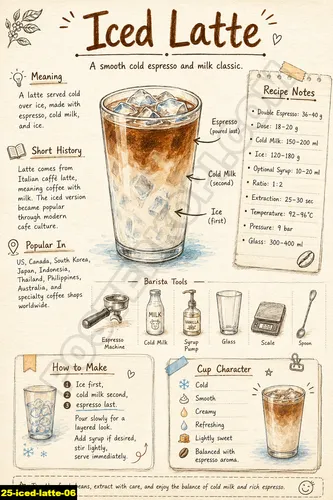 Iced Latte
A smooth cold espresso and milk classic.
Meaning
A latte served cold
over ice, made with
espresso, cold milk,
and ice.
Short History
Latte comes from
Italian caffè latte,
meaning coffee with
milk. The iced version
became popular
through modern
cafe culture.
Popular In
US, Canada, South Korea,
Japan, Indonesia,
Thailand, Philippines,
Australia, and
specialty coffee shops
worldwide.
Espresso
(poured last)
Cold Milk
(second)
Ice
(first)
Recipe Notes
• Double Espresso: 36-40 g
• Dose: 18-20 g
• Cold Milk: 150-200 ml
• Ice: 120-180 g
• Optional Syrup: 10-20 ml
• Ratio: 1:2
• Extraction: 25-30 sec
• Temperature: 92-96°C
• Pressure: 9 bar
• Glass: 300-400 ml
Barista Tools
MILK
VANILLA
Espresso
Machine
Cold Milk
Syrup
Pump
Glass
Scale
Spoon
How to Make
1 Ice first,
2 cold milk second,
3 espresso last.
Pour slowly for
a layered look.
Add syrup if desired,
stir lightly,
serve immediately.
Cup Character
Cold
Smooth
Creamy
Refreshing
Lightly sweet
Balanced with
espresso aroma.
beans, extract with care, and enjoy the balance of cold milk and rich espresso.
25-iced-latte-06